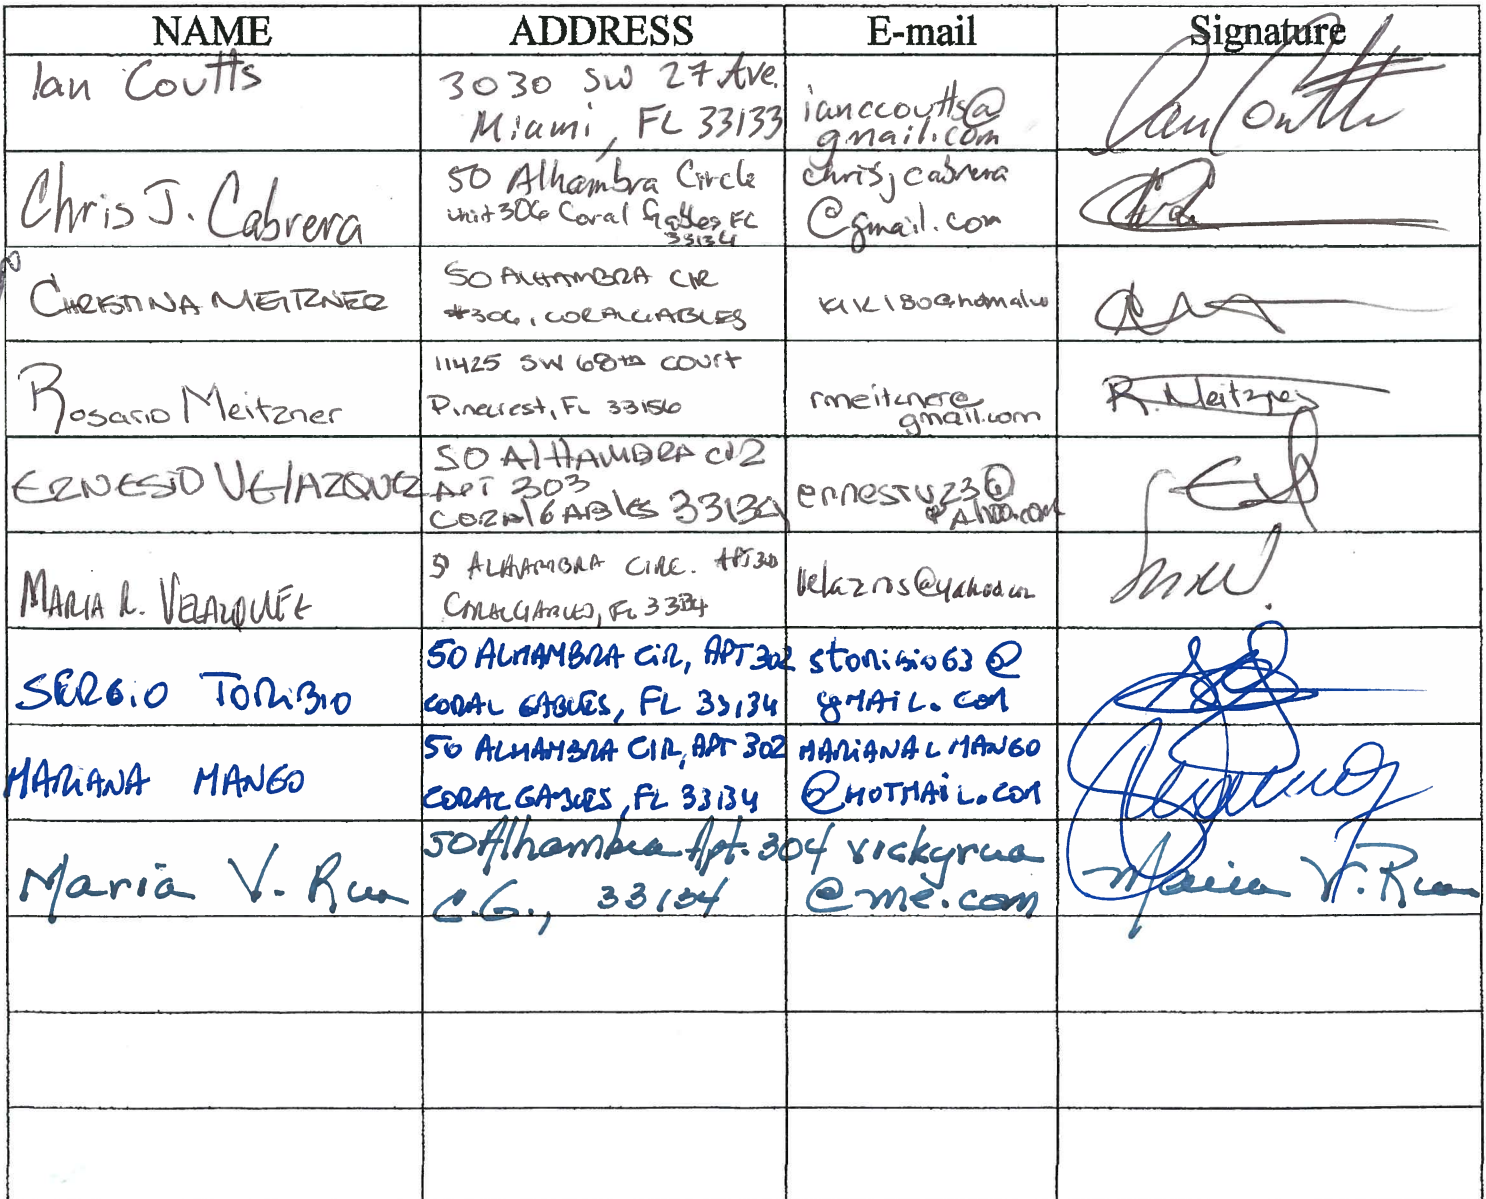 NAME ADDRESS E-mail Signature
Ian Coutts
3030 SW 27 Ave.
Miami, FL 33133
ianccoutts@
gmail.com
Ian Coutts
Chris J. Cabrera
50 Alhambra Circle
Unit 306 Coral Gables, FL
33134
chrisjcabrera
@gmail.com
CHRISTINA MEITZNER
50 ALHAMBRA CIR
#306, CORAL GABLES
Rosario Meitzner
11425 SW 68th court
Pinecrest, FL 33156
rmeitzner@
gmail.com
R. Meitzner
ERNESTO VELAZQUEZ
50 AlHAMBRA CIR
APT 303
CORAL GABLES 33134
ernestv23@
YAhoo.com
MARIA R. VELAZQUEZ
ALHAMBRA CIRC.
CORAL GABLES, FL 33134
SERGIO TORIBIO
50 ALHAMBRA CIR, APT 302
CORAL GABLES, FL 33134
storibio63@
gMAIL.COM
MARIANA MANGO
50 ALHAMBRA CIR, APT 302
CORAL GABLES, FL 33134
MARIANALMANGO
@HOTMAIL.COM
Maria V. Rua
50 Alhambra Apt. 304
C.G., 33134
vickyrua
@me.com
Maria V. Rua